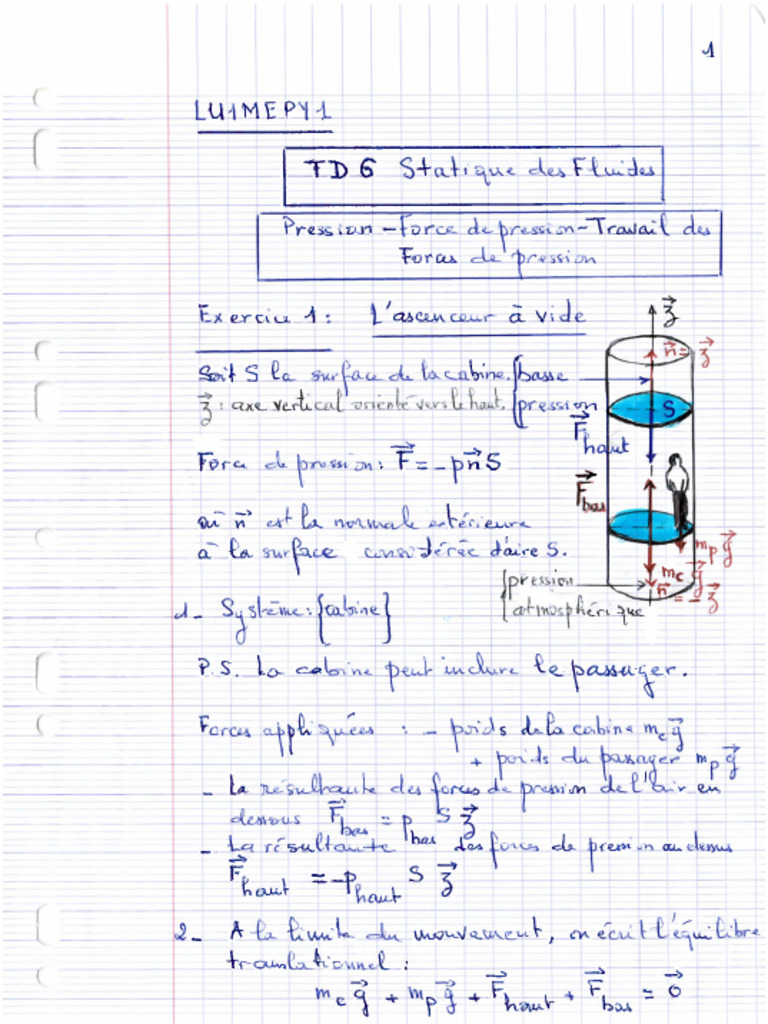 1
LU1MEPY1
TD 6 Statique des Fluides
Pression - Force de pression - Travail des
Forces de pression
Exercice 1 : L'ascenceur à vide
Soit S la surface de la cabine.
basse
pression
z⃗ : axe vertical orienté vers le haut.
z⃗
n⃗ = z⃗
S
F⃗haut
F⃗bas
mp g⃗
mc g⃗
n⃗ = -z⃗
Force de pression : F⃗ = -p n⃗ S
où n⃗ est la normale extérieure
à la surface considérée d'aire S.
pression
atmosphérique
1- Système : {cabine}
P.S. La cabine peut inclure le passager.
Forces appliquées : - poids de la cabine mc g⃗
+ poids du passager mp g⃗
- La résultante des forces de pression de l'air en
dessous F⃗bas = pbas S z⃗
- La résultante des forces de pression au dessus
F⃗haut = -phaut S z⃗
2- A la limite du mouvement, on écrit l'équilibre
translationnel :
mc g⃗ + mp g⃗ + F⃗haut + F⃗bas = 0⃗